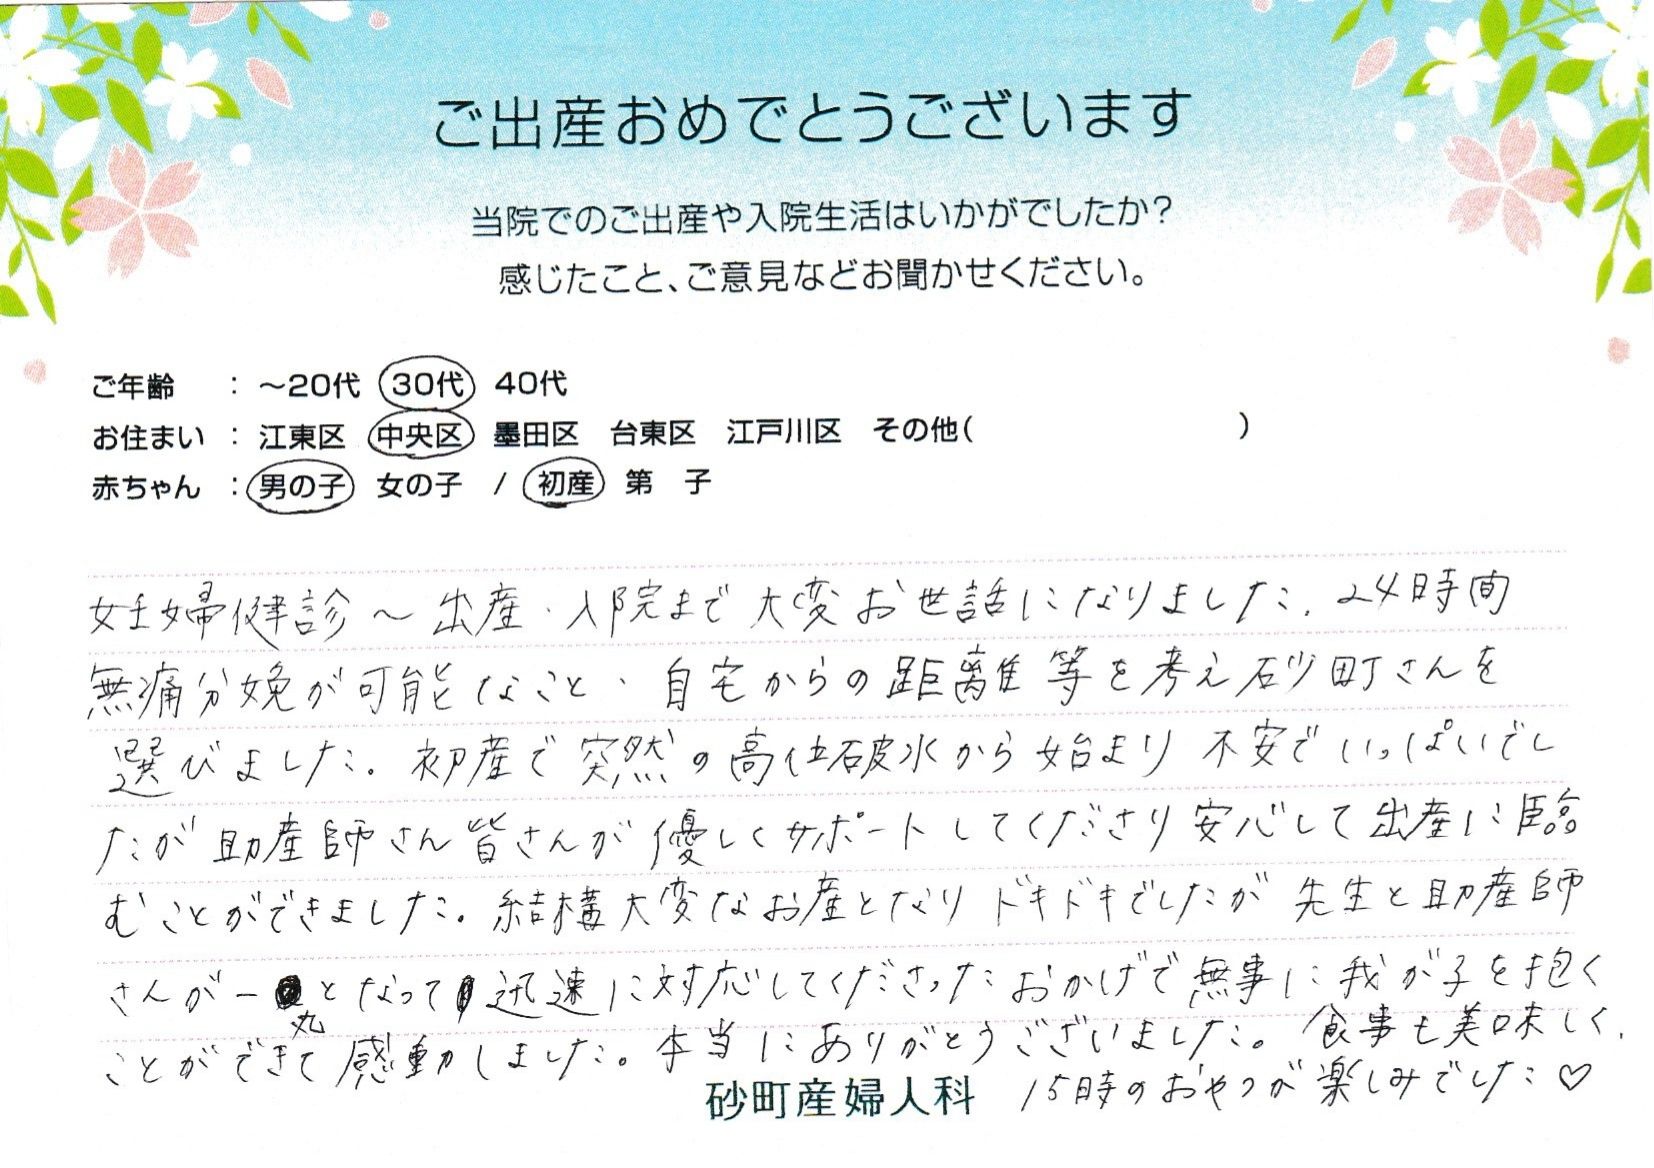 ご出産おめでとうございます
当院でのご出産や入院生活はいかがでしたか？
感じたこと、ご意見などお聞かせください。
ご年齢 : ～20代 30代 40代
お住まい : 江東区 中央区 墨田区 台東区 江戸川区 その他( )
赤ちゃん : 男の子 女の子 / 初産 第 子
妊婦健診〜出産・入院まで大変お世話になりました。24時間
無痛分娩が可能なこと、自宅からの距離等を考え砂町さんを
選びました。初産で突然の高位破水から始まり不安でいっぱいでし
たが助産師さん皆さんが優しくサポートしてくださり安心して出産に臨
むことができました。結構大変なお産となりドキドキでしたが先生と助産師
さんが一丸となって迅速に対応してくださったおかげで無事に我が子を抱く
ことができて感動しました。本当にありがとうございました。食事も美味しく、
15時のおやつが楽しみでした♡
砂町産婦人科